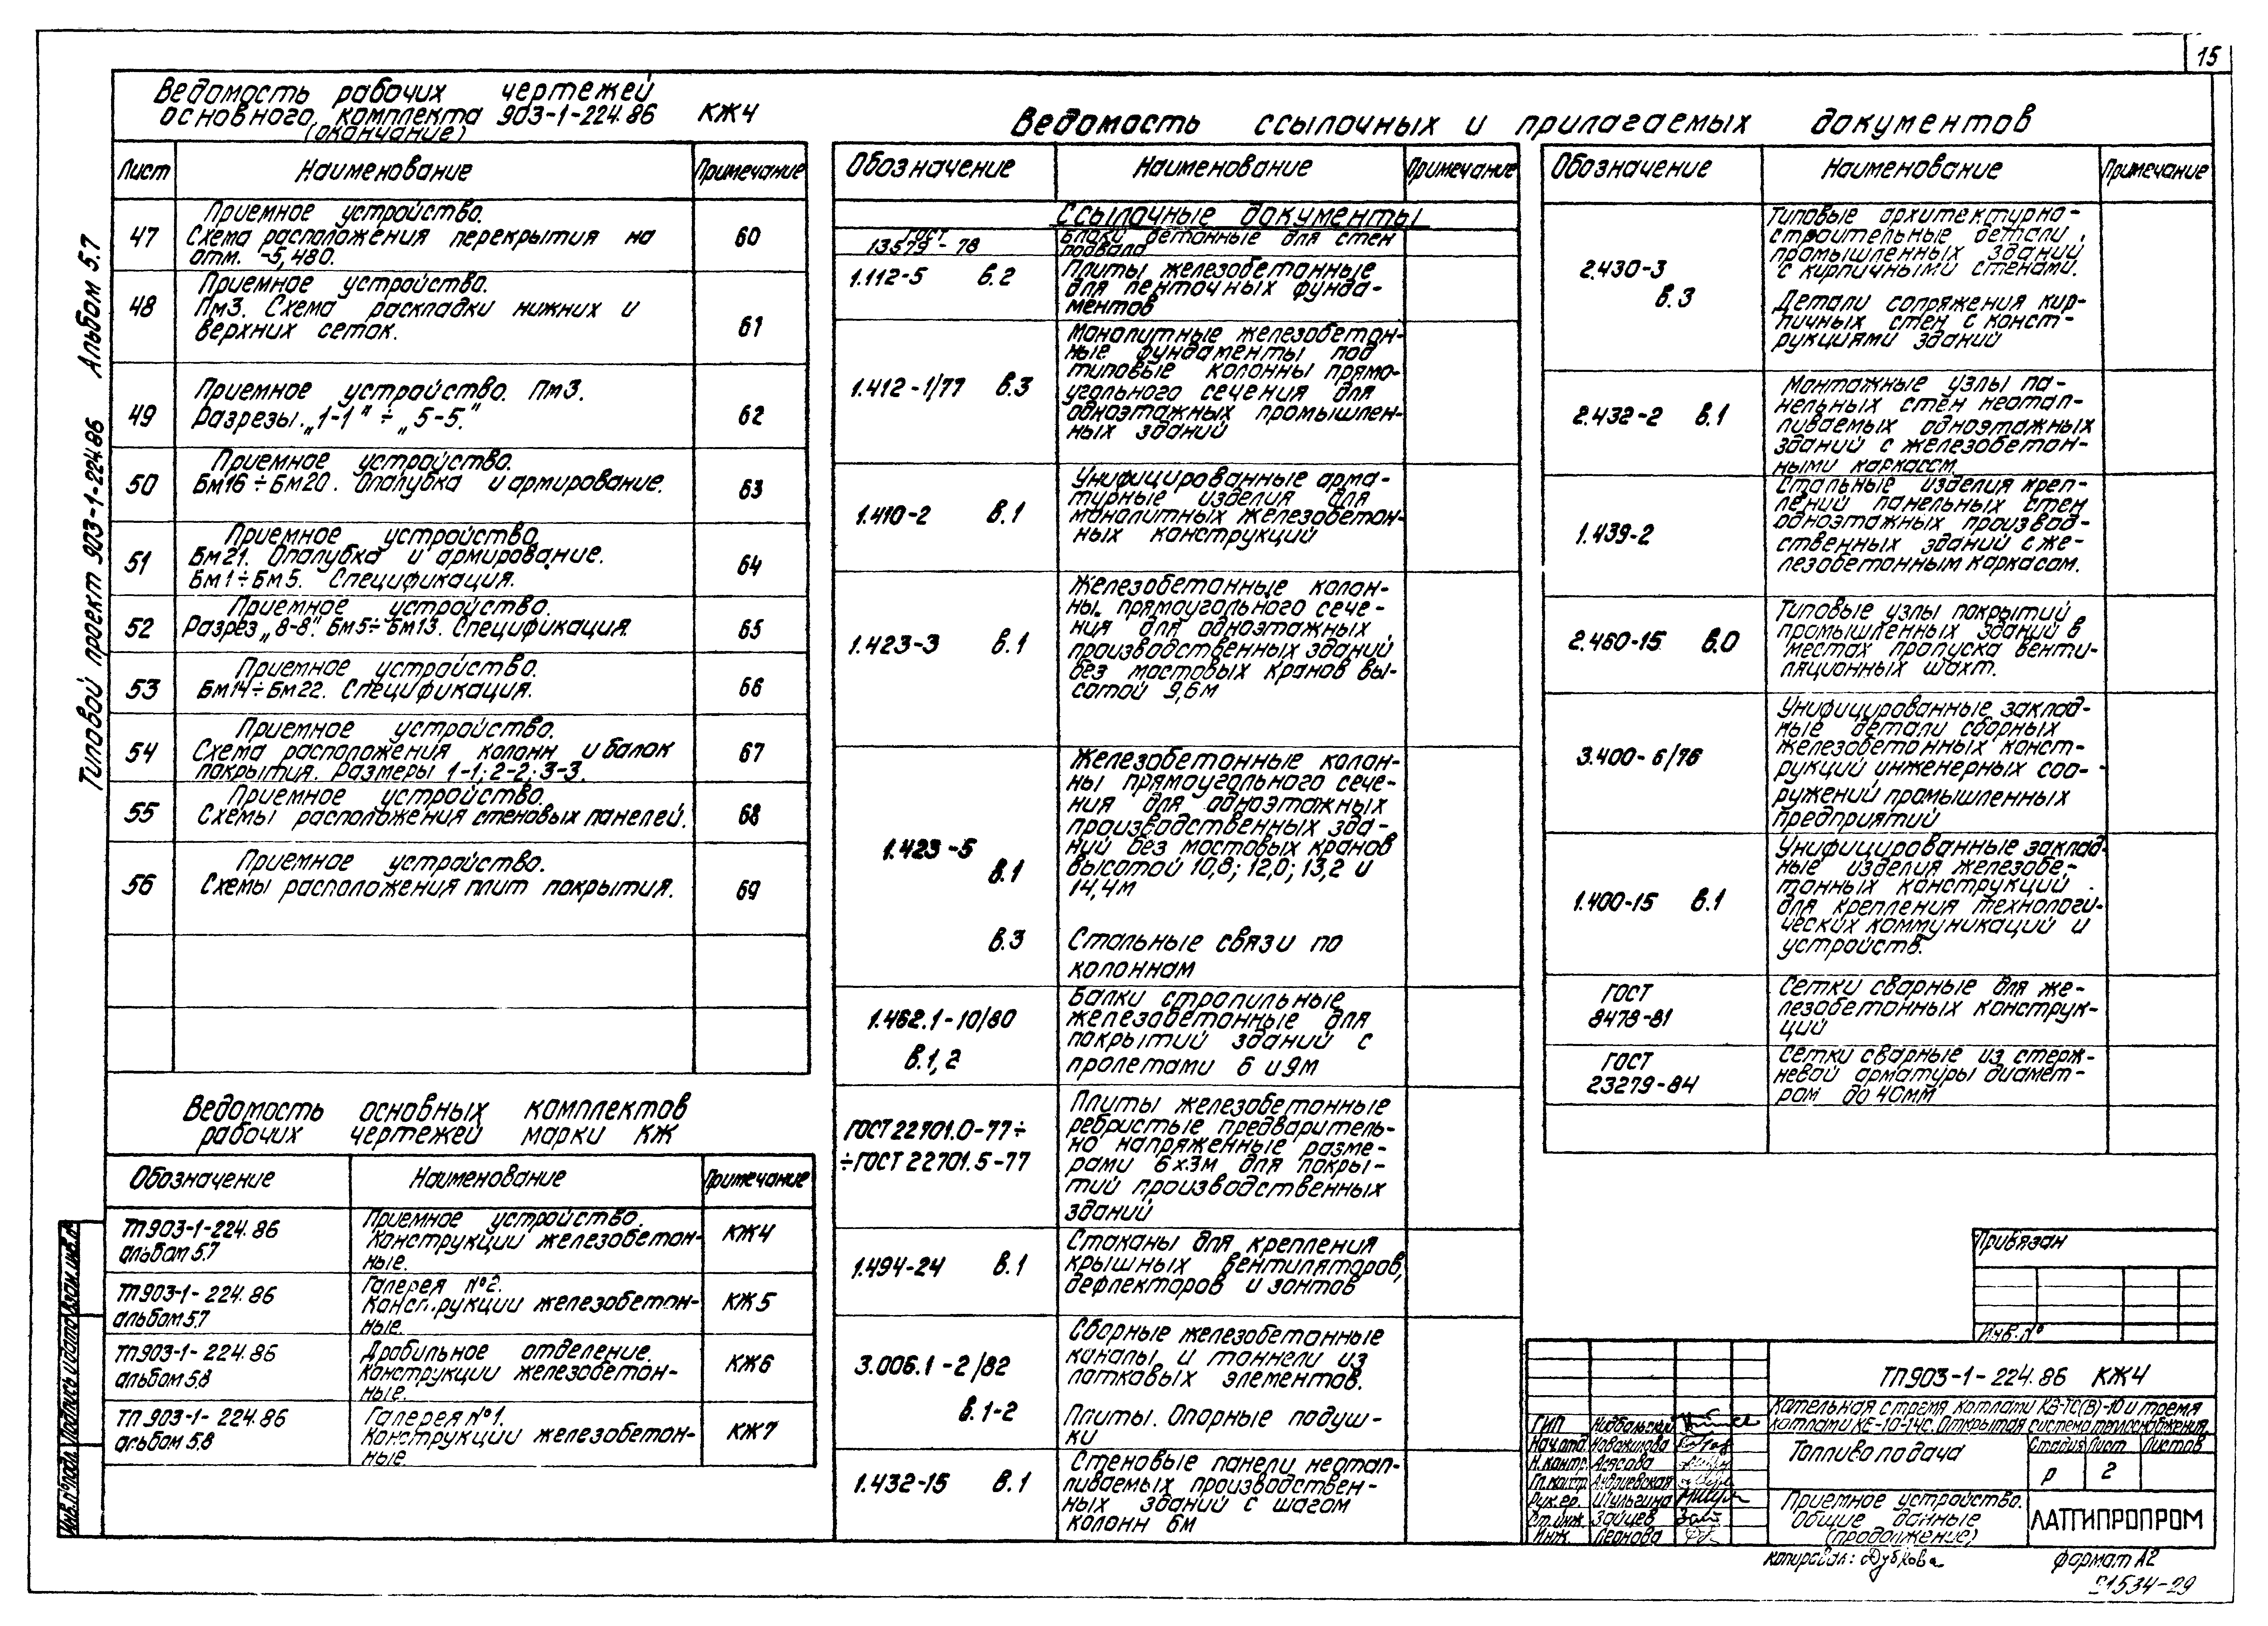 15
Типовой проект 903-1-224.86 Альбом 5.7
Ведомость рабочих чертежей
основного комплекта 903-1-224.86 КЖ4
(окончание)
Лист Наименование Примечание
47 Приемное устройство. 60
Схема расположения перекрытия на
отм. -5,480.
48 Приемное устройство. 61
Пм3. Схема раскладки нижних и
верхних сеток.
49 Приемное устройство. Пм3. 62
Разрезы „1-1" ÷ „5-5."
50 Приемное устройство. 63
Бм16÷Бм20. Опалубка и армирование.
51 Приемное устройство. 64
Бм21. Опалубка и армирование.
Бм1÷Бм5. Спецификация.
52 Приемное устройство. 65
Разрез „8-8". Бм5÷Бм13. Спецификация.
53 Приемное устройство. 66
Бм14÷Бм22. Спецификация.
54 Приемное устройство. 67
Схема расположения колонн и балок
покрытия. Размеры 1-1; 2-2; 3-3.
55 Приемное устройство. 68
Схемы расположения стеновых панелей.
56 Приемное устройство. 69
Схемы расположения плит покрытия.
Ведомость основных комплектов
рабочих чертежей марки КЖ
Обозначение Наименование Примечание
ТП903-1-224.86 Приемное устройство. КЖ4
альбом 5.7 Конструкции железобетон-
ные.
ТП903-1-224.86 Галерея №2. КЖ5
альбом 5.7 Конструкции железобетон-
ные.
ТП903-1-224.86 Дробильное отделение. КЖ6
альбом 5.8 Конструкции железобетон-
ные.
ТП903-1-224.86 Галерея №1. КЖ7
альбом 5.8 Конструкции железобетон-
ные
Ведомость ссылочных и прилагаемых документов
Обозначение Наименование Примечание
Ссылочные документы
ГОСТ 13579-78 Блоки бетонные для стен
подвала
1.112-5 в.2 Плиты железобетонные
для ленточных фунда-
ментов
1.412-1/77 в.3 Монолитные железобетон-
ные фундаменты под
типовые колонны прямо-
угольного сечения для
одноэтажных промышлен-
ных зданий
1.410-2 в.1 Унифицированные арма-
турные изделия для
монолитных железобетон-
ных конструкций
1.423-3 в.1 Железобетонные колон-
ны прямоугольного сече-
ния для одноэтажных
производственных зданий
без мостовых кранов вы-
сотой 9,6м
1.423-5 в.1 Железобетонные колон-
ны прямоугольного сече-
ния для одноэтажных
производственных зда-
ний без мостовых кранов
высотой 10,8; 12,0; 13,2 и
14,4м
в.3 Стальные связи по
колоннам
1.462.1-10/80 в.1,2 Балки стропильные
железобетонные для
покрытий зданий с
пролетами 6 и 9м
ГОСТ 22701.0-77÷ ÷ГОСТ 22701.5-77 Плиты железобетонные
ребристые предваритель-
но напряженные разме-
рами 6х3м для покры-
тий производственных
зданий
1.494-24 в.1 Стаканы для крепления
крышных вентиляторов,
дефлекторов и зонтов
3.006.1-2/82 Сборные железобетонные
каналы и тоннели из
лотковых элементов.
в.1-2 Плиты. Опорные подуш-
ки
1.432-15 в.1 Стеновые панели неотап-
ливаемых производствен-
ных зданий с шагом
колонн 6м
Обозначение Наименование Примечание
2.430-3 в.3 Типовые архитектурно-
строительные детали
промышленных зданий
с кирпичными стенами.
Детали сопряжения кир-
пичных стен с конст-
рукциями зданий
2.432-2 в.1 Монтажные узлы па-
нельных стен неотап-
ливаемых одноэтажных
зданий с железобетон-
ными каркасом.
1.439-2 Стальные изделия креп-
лений панельных стен
одноэтажных производ-
ственных зданий с же-
лезобетонным каркасом.
2.460-15 в.0 Типовые узлы покрытий
промышленных зданий в
местах пропуска венти-
ляционных шахт.
3.400-6/76 Унифицированные заклад-
ные детали сборных
железобетонных конст-
рукций инженерных соо-
ружений промышленных
предприятий
1.400-15 в.1 Унифицированные заклад-
ные изделия железобе-
тонных конструкций
для крепления технологи-
ческих коммуникаций и
устройств.
ГОСТ 8478-81 Сетки сварные для же-
лезобетонных конструк-
ций
ГОСТ 23279-84 Сетки сварные из стерж-
невой арматуры диамет-
ром до 40мм
Привязан
Инв.№
ТП903-1-224.86 КЖ4
Котельная с тремя котлами КВ-ТС(В)-10 и тремя
котлами КЕ-10-14С. Открытая система теплоснабжения
ГИП
Нач.отд. Новожилова
Н.контр. Агясова
Гл.констр. Андриевская
Рук.гр. Шульгина
Ст.инж. Зайцев
Инж. Леонова
Топливоподача
Стадия Лист Листов
р 2
Приемное устройство.
Общие данные
(продолжение)
ЛАТГИПРОПРОМ
Инв.№подл. Подпись и дата Взам.инв.№
копировал: Дубкова формат А2
21534-29